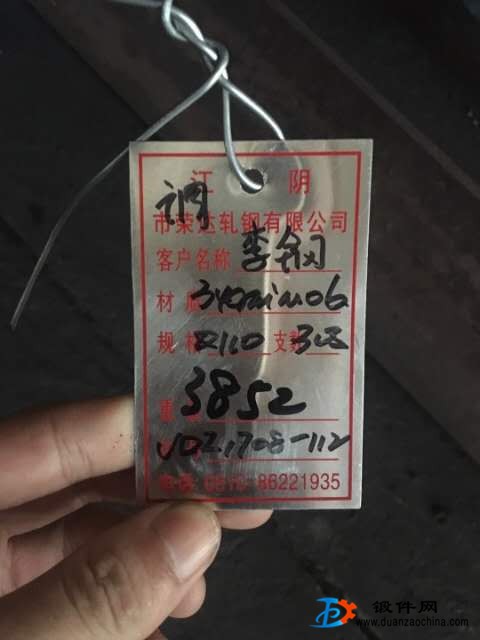 江 阴
调
市荣达轧钢有限公司
客户名称 李钢
材质 34CrNiMo6
规格 支数
重 3852
1708-112
电话 0510-86221935
锻件网
www.duanzaochina.com